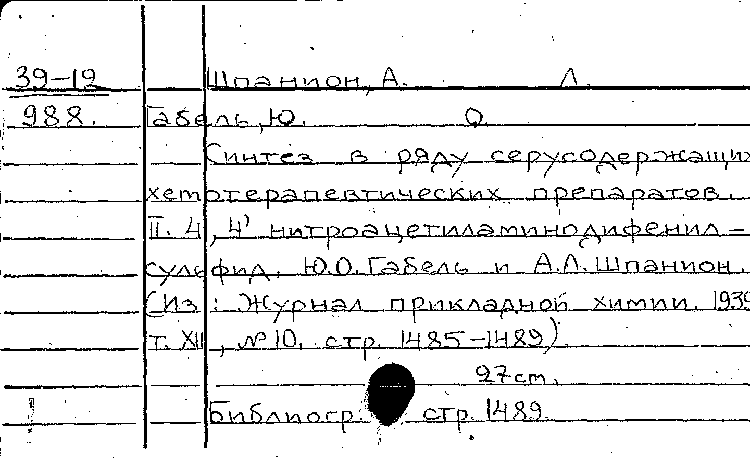 39-12 Шпанион, А. Л.
988. Габель, Ю. О.
Синтез в ряду серусодержащих
хемотерапевтических препаратов.
II. 4, 4' нитроацетиламинодифенил-
сульфид. Ю.О. Габель и А.Л. Шпанион.
(Из: Журнал прикладной химии. 1939
т. XII, № 10, стр. 1485-1489)
27 cm.
Библиогр. стр. 1489